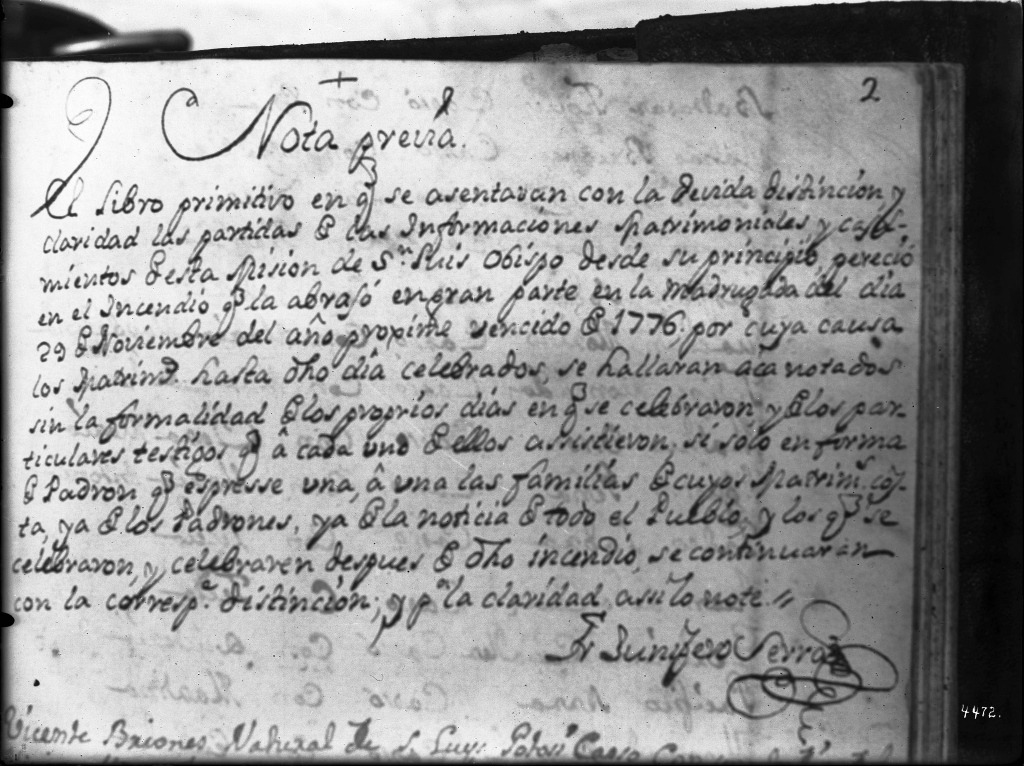 +
2
Nota previa.
El Libro primitivo en q̃ se asentavan con la devida distincion y
claridad las partidas de las Informaciónes Matrimoniales y casa-
mientos de esta Mision de Sn. Luis Obispo desde su principio pereció
en el Incendio q̃ la abrasó en gran parte en la madrugada del dia
29 de Noviembre del año proxime vencido de 1776. por cuya causa
los Matrims. hasta dho dia celebrados, se hallaran aca notados
sin la formalidad de los proprios dias en q̃ se celebraron y de los par-
ticulares testigos q̃ â cada uno de ellos assistieron, si solo en forma
de Padron q̃ espresse una, â una las familias de cuyos Matrims. cõs-
ta, ya de los Padrones, ya de la noticia de todo el Pueblo, y los q̃ se
celebraron, y celebraren despues de dho incendio, se continuaran
con la corresp.e distinción; y pa. la claridad assi lo note.
Fr Junipero Serra
Vicente Briones Natural de S. Luys Potosi Caso Con
4472.